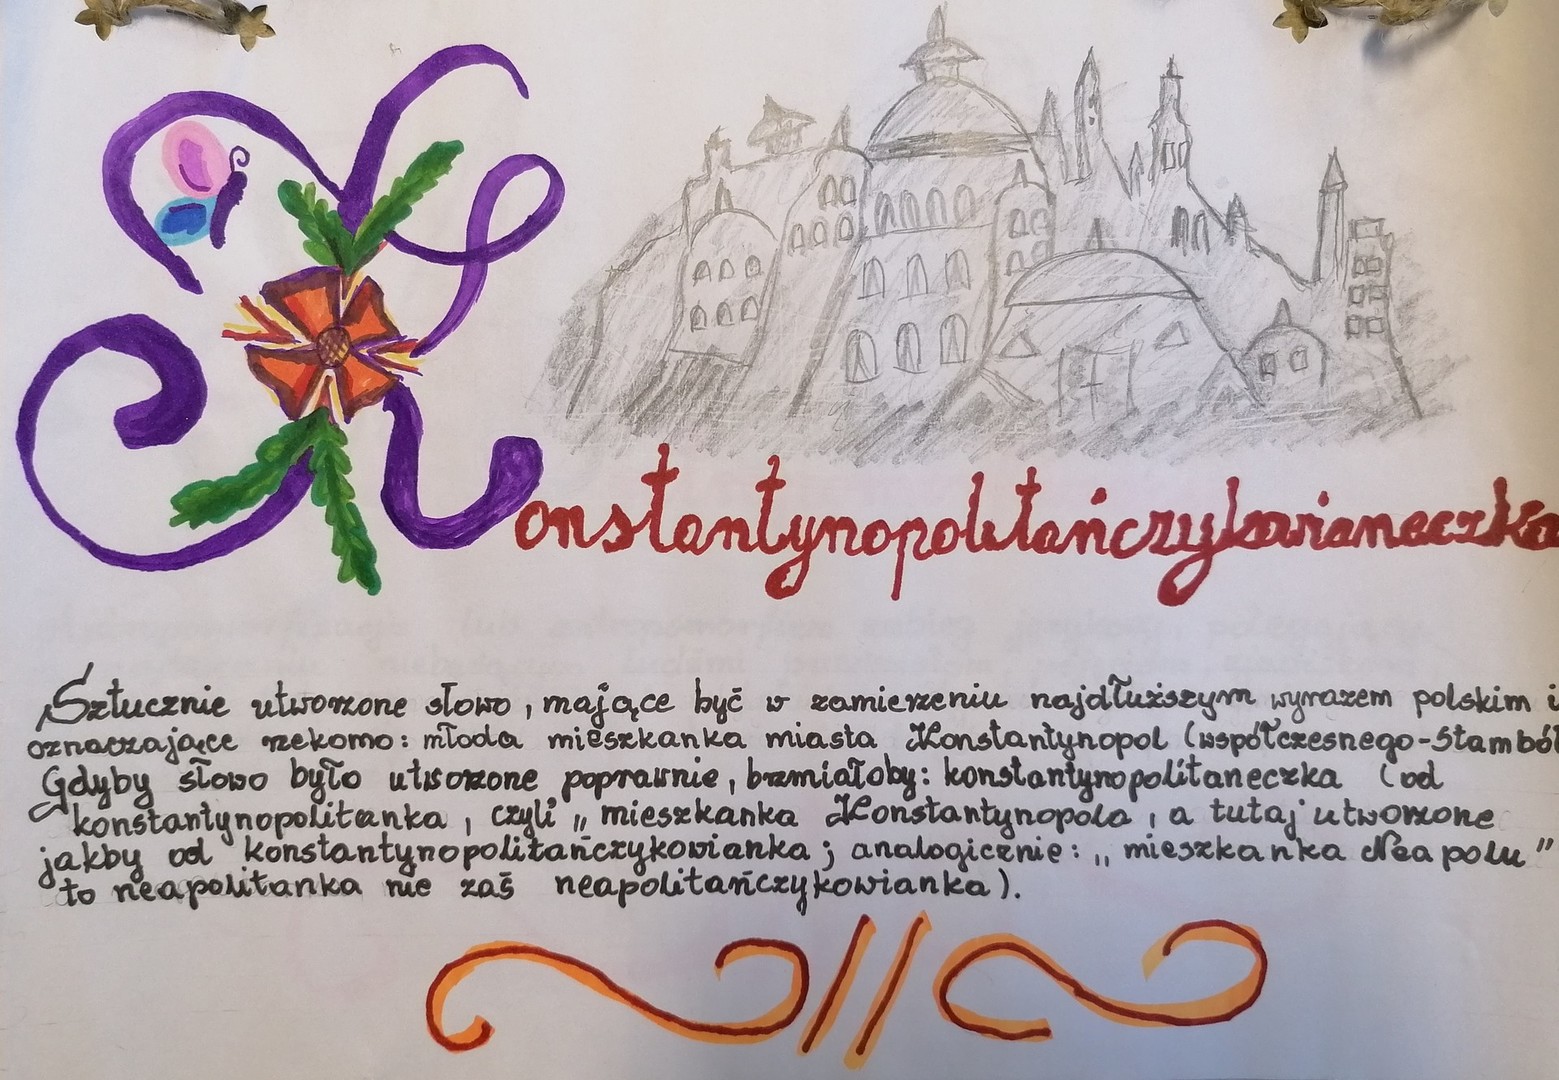 Konstantynopolitańczykowianeczka
Sztucznie utworzone słowo, mające być w zamierzeniu najdłuższym wyrazem polskim i
oznaczające rzekomo: młoda mieszkanka miasta Konstantynopol (współczesnego-Stambół
Gdyby słowo było utworzone poprawnie, brzmiałoby: konstantynopolitaneczka (od
konstantynopolitanka, czyli „mieszkanka Konstantynopola, a tutaj utworzone
jakby od konstantynopolitańczykowianka; analogicznie: „mieszkanka Neapolu”
to neapolitanka nie zaś neapolitańczykowianka).